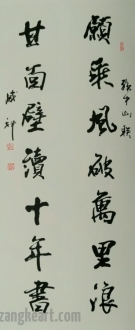 願乘風破萬里浪
甘面壁讀十年書
zangkeart.com